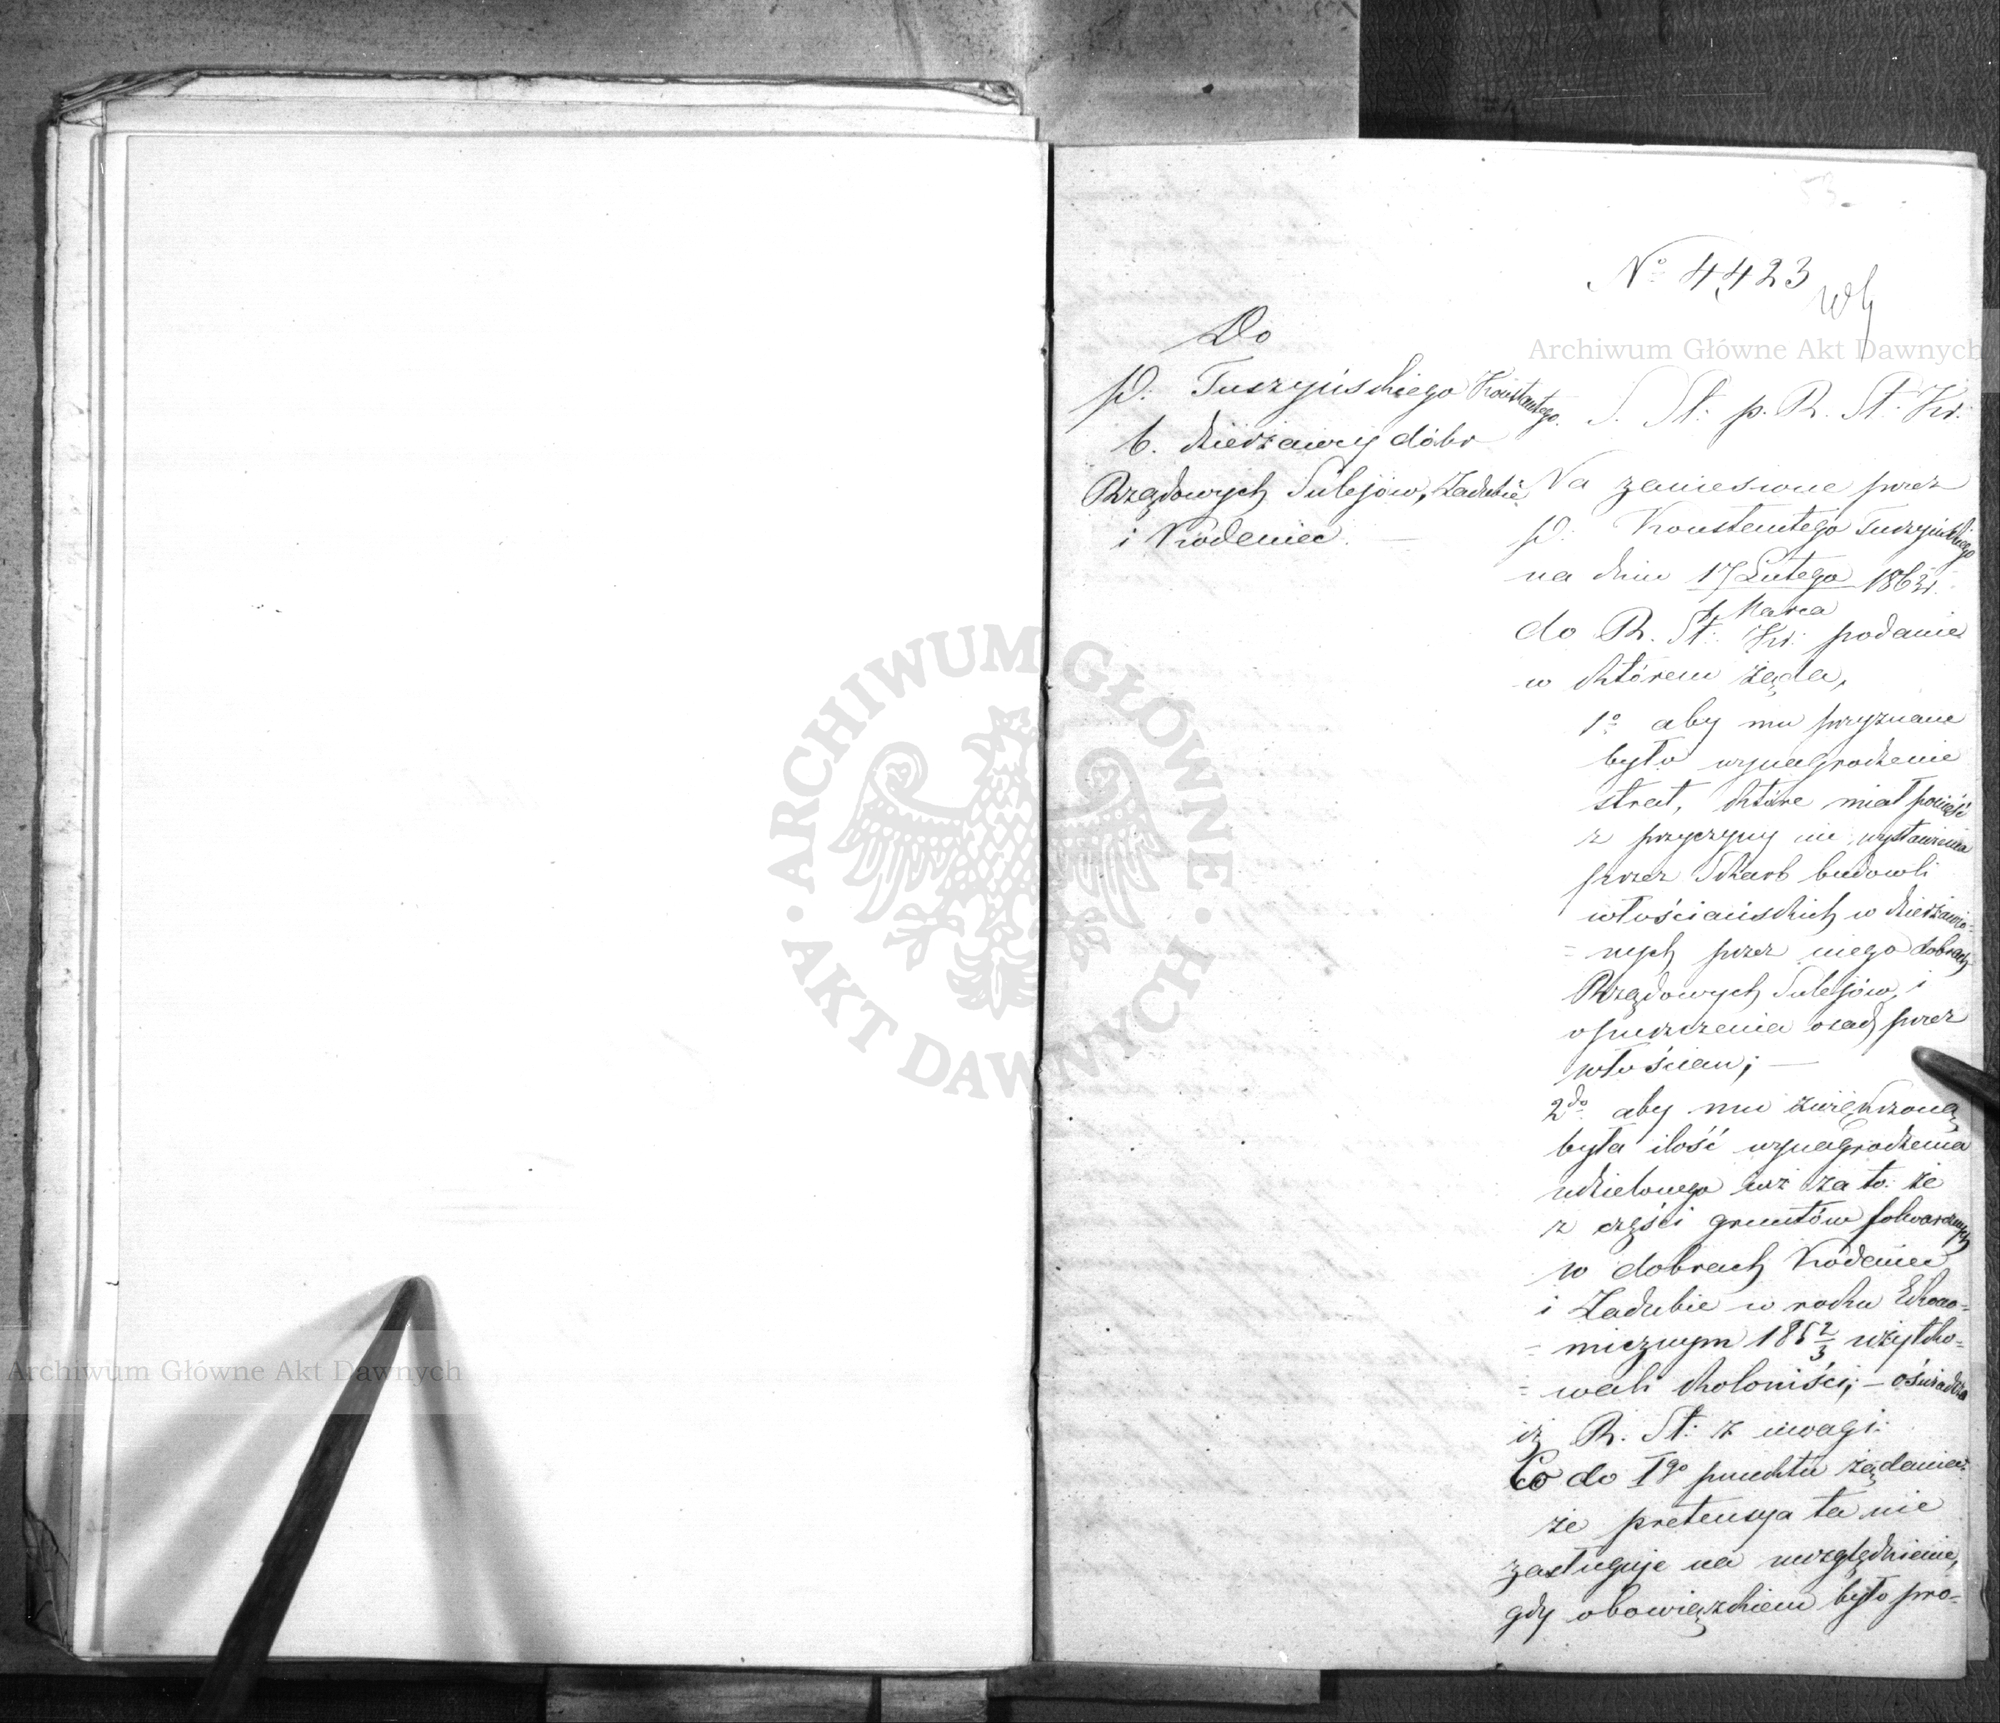 53.
Nº 4423
Do
P. Tuszyńskiego Konstantego.
b. dzierżawcy dóbr
Rządowych Sulejów, Zadubie
i Kodeniec. —
S. St: p. R. St: Kr:
Na zaniesione przez
P. Konstantego Tuszyńskiego
na dniu 17 Lutego 1863 r.
1 Marca
do R. St: Kr: podanie
w którem żąda,
1º aby mu przyznane
było wynagrodzenie
strat, które miał ponieść
z przyczyny nie wystawienia
przez Skarb budowli
włościańskich w dzierżawio-
= nych przez niego dobrach
Rządowych Sulejów, i
opuszczenia osad przez
włościan; —
2do aby mu zwiększoną
była ilość wynagrodzenia
udzielonego już za to że
z części gruntów folwarcznych
w dobrach Kodeniec
i Zadubie w roku Ekono-
= micznym 185 2/3 użytko-
= wali koloniści; – oświadcza
iż R. St: z uwagi:
Co do Igo punktu żądania
że pretensya ta nie
zasługuje na uwzględnienie,
gdy obowiązkiem było pro-
Archiwum Główne Akt Dawnych
Archiwum Główne Akt Dawnych
ARCHIWUM GŁÓWNE · AKT DAWNYCH ·